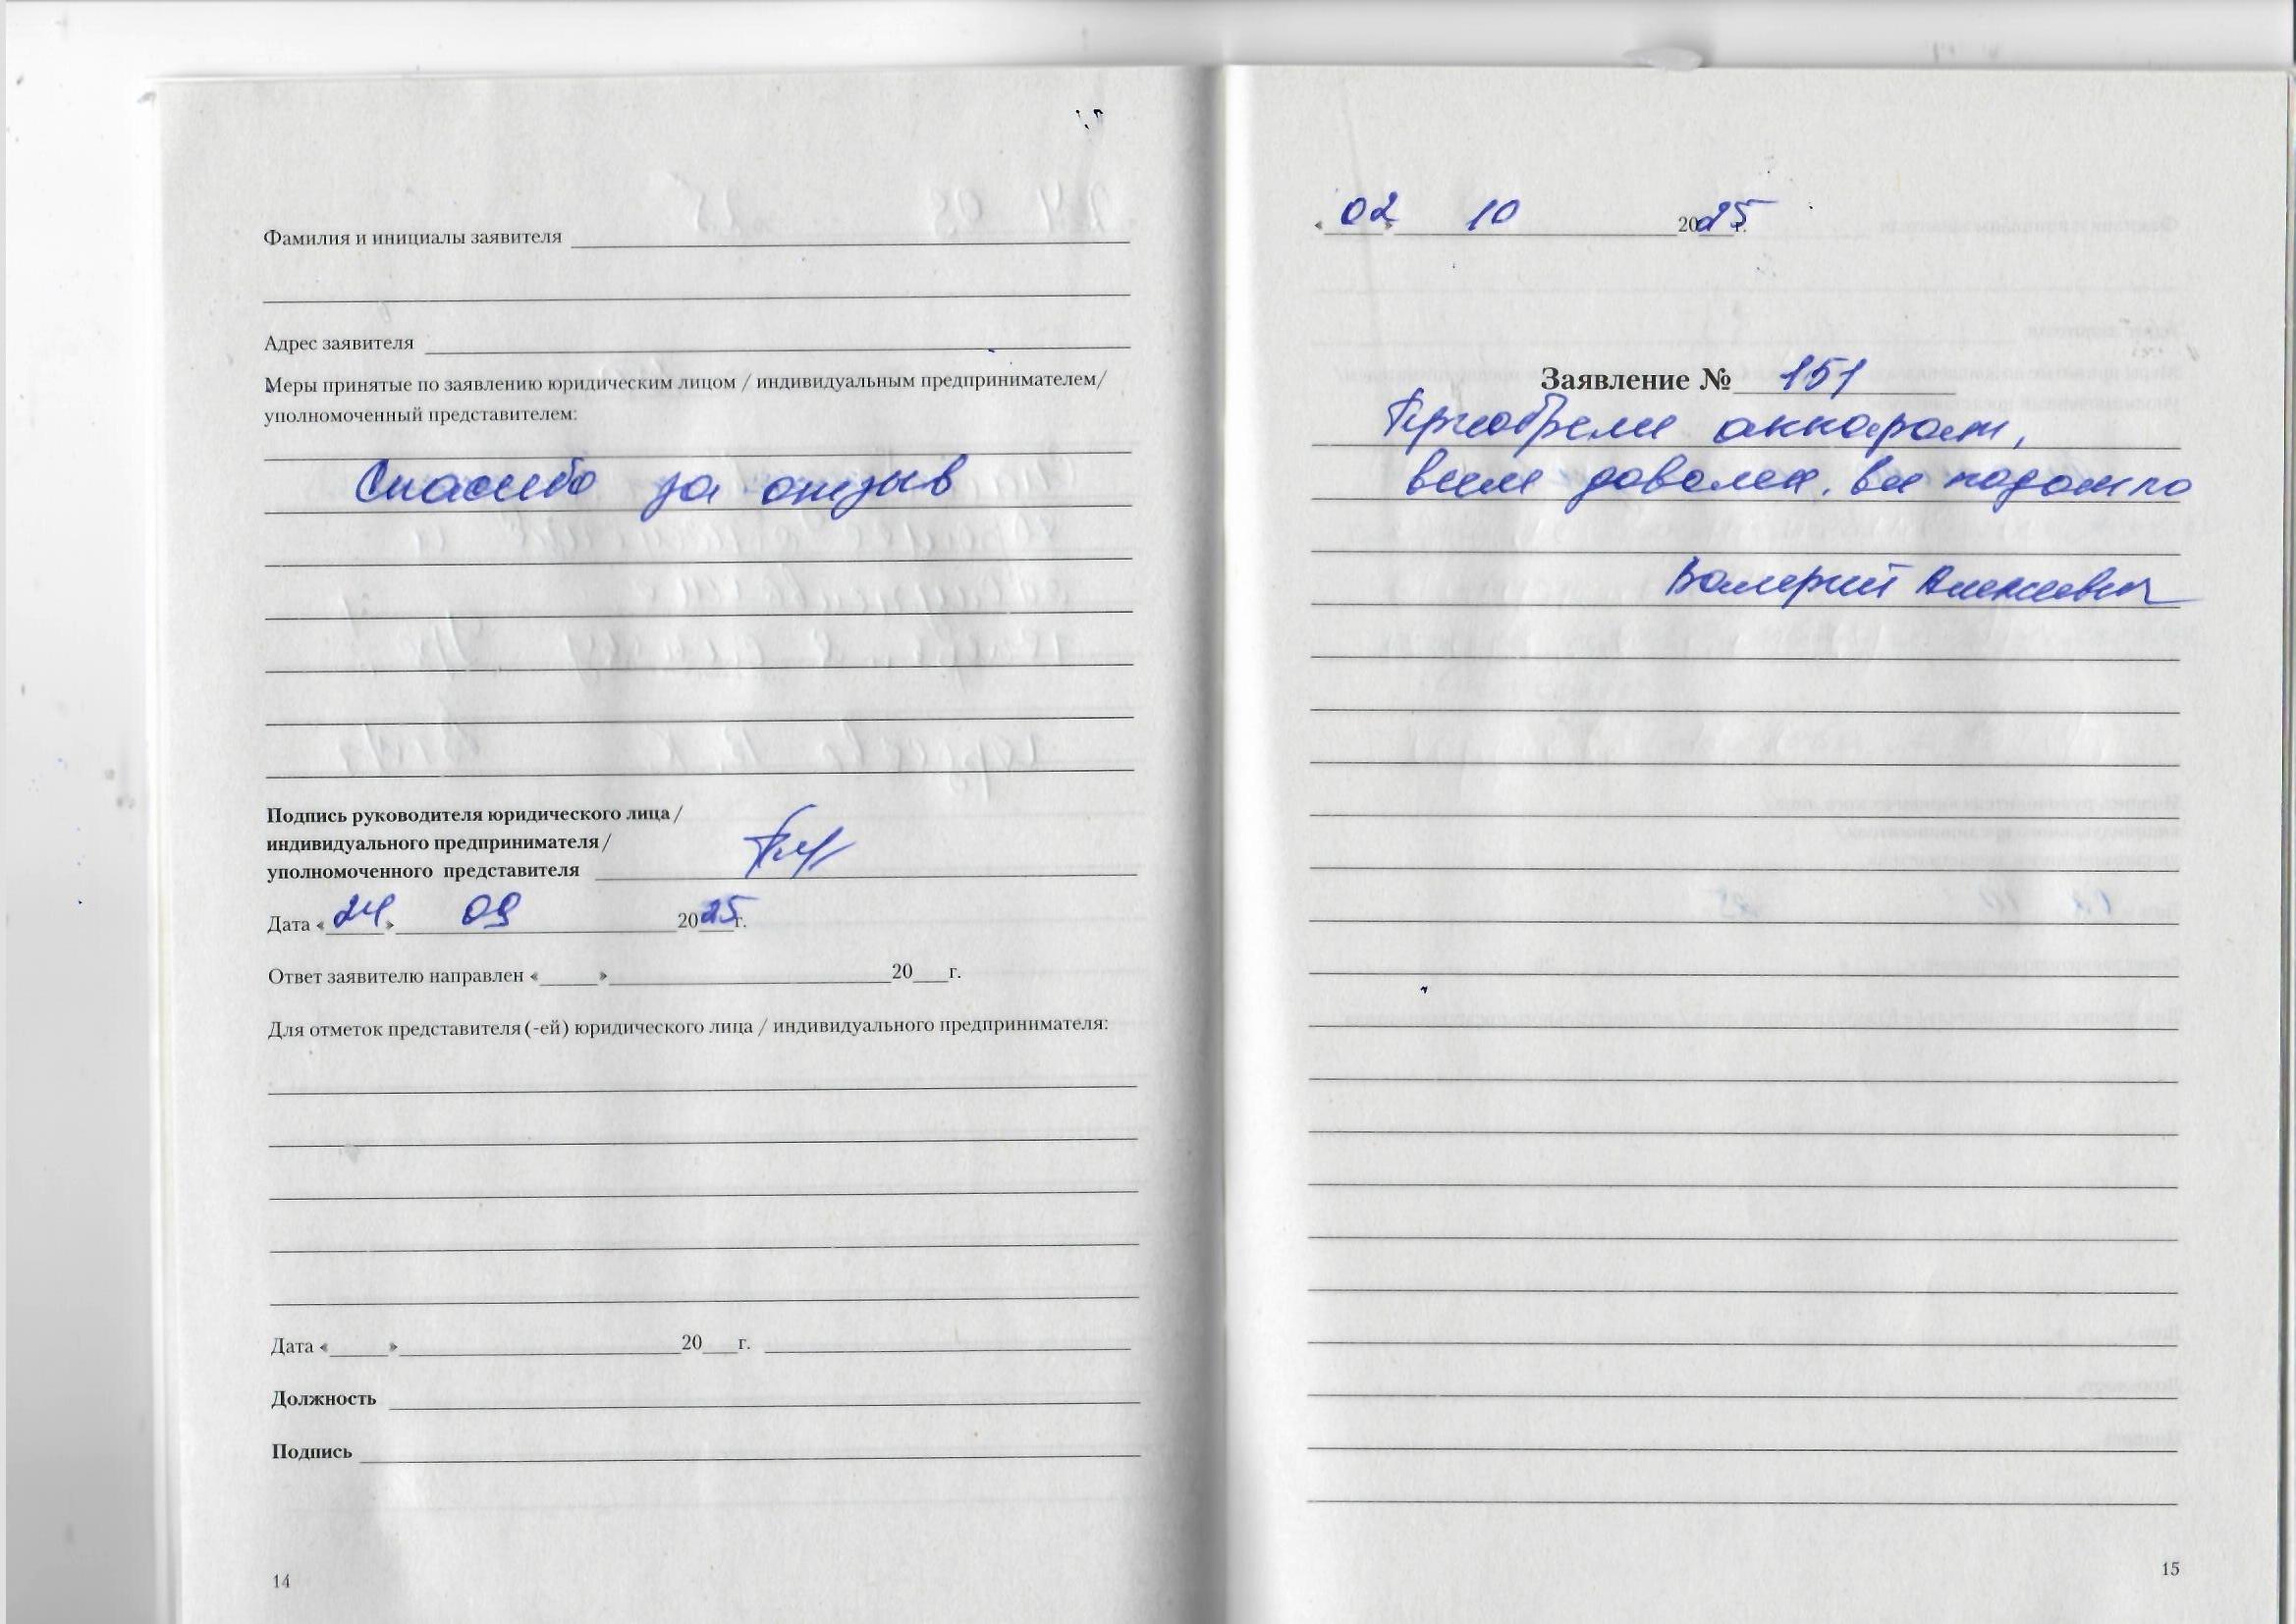 Фамилия и инициалы заявителя
Адрес заявителя
Меры принятые по заявлению юридическим лицом / индивидуальным предпринимателем/
уполномоченный представителем:
Спасибо за отзыв
Подпись руководителя юридического лица /
индивидуального предпринимателя /
уполномоченного представителя
Дата «24» 09 2025г.
Ответ заявителю направлен « » 20 г.
Для отметок представителя (-ей) юридического лица / индивидуального предпринимателя:
Дата « » 20 г.
Должность
Подпись
14
«02» 10 2025г.
Заявление № 151
Приобрели аппарат,
всем доволен, все подошло
Валерий Алексеевич
15